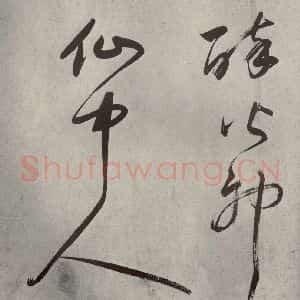 醉
仙中人
Shufawang.CN